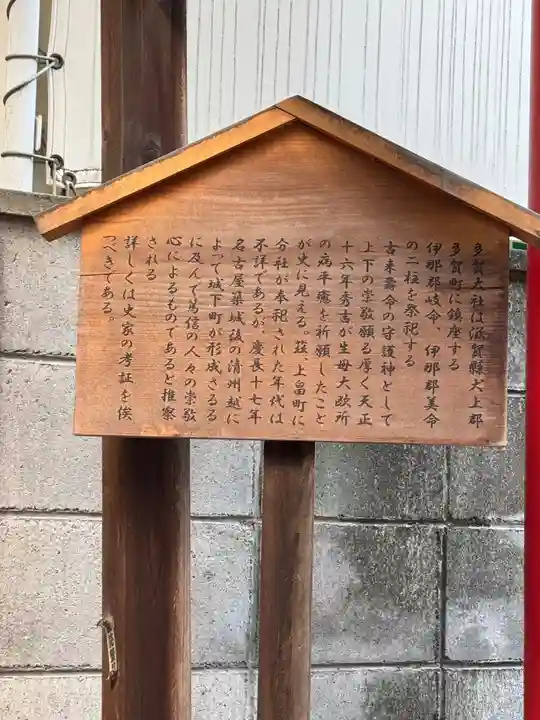 多賀大社は滋賀縣犬上郡
多賀町に鎮座する
伊那那岐命、伊那那美命
の二柱を祭祀する
古来壽命の守護神として
上下の崇敬願る厚く天正
十六年秀吉が生母大政所
の病平癒を祈願したこと
が史に見える。茲、上畠町に
分社が奉祀された年代は
不詳であるが、慶長十七年
名古屋築城後の清州越に
よって城下町が形成さるる
に及んで篤信の人々の崇敬
心によるものであると推察
される
詳しくは史家の考証を俟
つべきである。